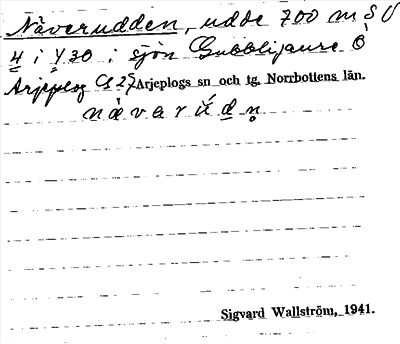 Näverudden, udde 700 m S O
4 i Y 30 i sjön Gubblijaure Ö
Arjeplog Cs 27 Arjeplogs sn och tg, Norrbottens län.
n ä v a r ú d n
Sigvard Wallström, 1941.